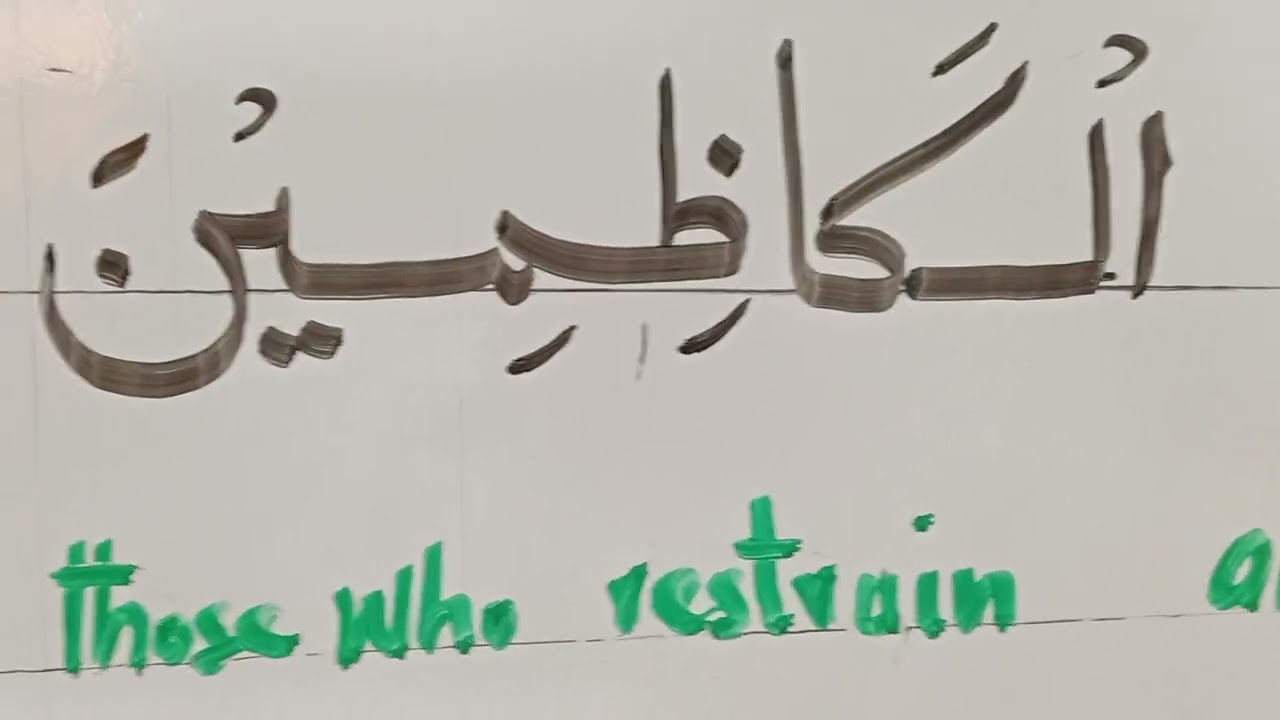 الْكَاظِمِيْنَ
Those who restrain